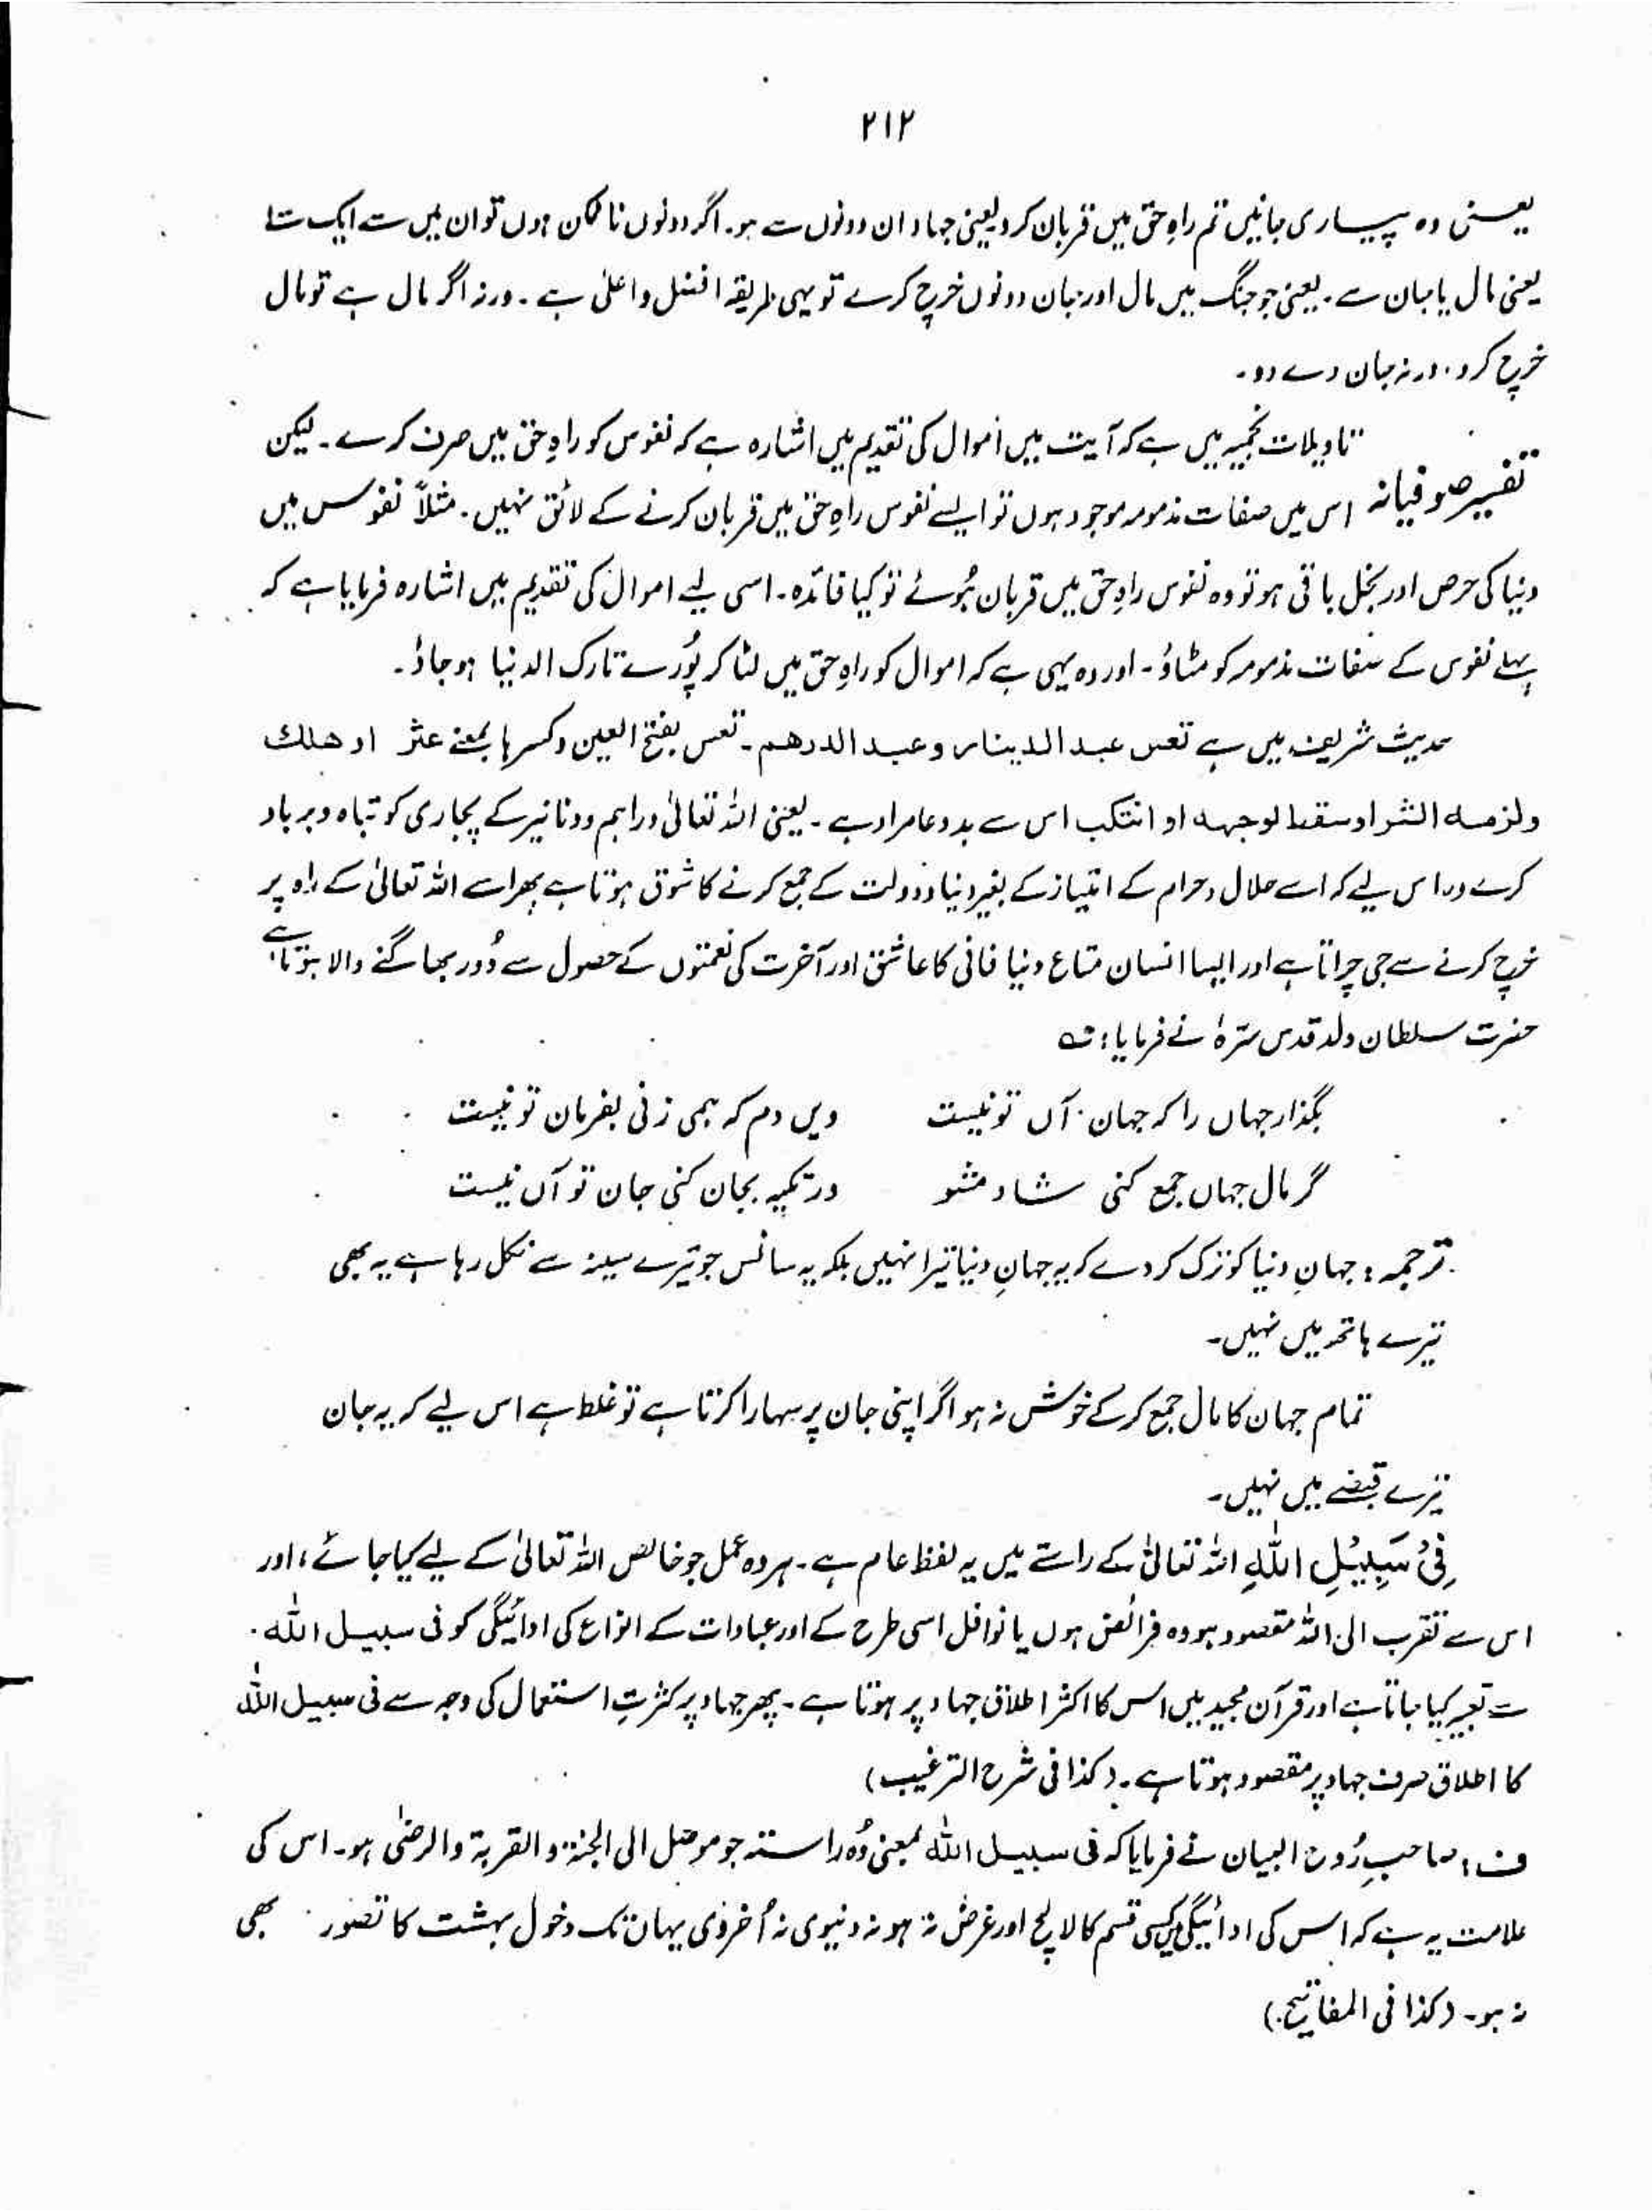 ۲۱۲
یعنی وہ پیاری جانیں تم راہِ حق میں قربان کرو یعنی جہاد ان دونوں سے ہو۔ اگر دونوں ناممکن ہوں تو ان میں سے ایک سے
یعنی مال یا جان سے۔ یعنی جو جنگ میں مال اور جان دونوں خرچ کرے تو یہی طریقہ افضل و اعلیٰ ہے۔ ورنہ اگر مال ہے تو مال
خرچ کرو۔ ورنہ جان دے دو۔
تاویلات نجمیہ میں ہے کہ آیت میں اموال کی تقدیم میں اشارہ ہے کہ نفوس کو راہِ حق میں صرف کرے۔ لیکن
تفسیر صوفیانہ اس میں صفات مذمومہ موجود ہوں تو ایسے نفوس راہِ حق میں قربان کرنے کے لائق نہیں۔ مثلاً نفوس میں
دنیا کی حرص اور بخل باقی ہو تو وہ نفوس راہِ حق میں قربان ہُوئے تو کیا فائدہ۔ اسی لیے اموال کی تقدیم میں اشارہ فرمایا ہے کہ
پہلے نفوس کے صفات مذمومہ کو مٹاؤ۔ اور وہ یہی ہے کہ اموال کو راہِ حق میں لٹا کر پُورے تارک الدنیا ہو جاؤ۔
حدیث شریف میں ہے تعس عبد الدینار و عبد الدرھم۔ تعس بفتح العین وکسرہا بمعنے عثر او ھلك
ولزمہ الشر او سقط لوجہہ او انتکب اس سے بددعا مراد ہے۔ یعنی اللہ تعالیٰ دراہم و دنانیر کے پجاری کو تباہ و برباد
کرے اس لیے کہ اسے حلال و حرام کے امتیاز کے بغیر دنیا و دولت کے جمع کرنے کا شوق ہوتا ہے پھر اسے اللہ تعالیٰ کے راہ پر
خرچ کرنے سے جی چراتا ہے اور ایسا انسان متاع دنیا فانی کا عاشق اور آخرت کی نعمتوں کے حصول سے دُور بھاگنے والا ہوتا ہے
حضرت سلطان ولد قدس سرّہٗ نے فرمایا: ؎
بگذار جہاں را کہ جہان آں تو نیست ویں دم کہ ہمی زنی بفرمان تو نیست
گر مال جہاں جمع کنی شاد مشو ور تکیہ بجان کنی جان تو آں نیست
ترجمہ: جہانِ دنیا کو ترک کر دے کہ یہ جہانِ دنیا تیرا نہیں بلکہ یہ سانس جو تیرے سینہ سے نکل رہا ہے یہ بھی
تیرے ہاتھ میں نہیں۔
تمام جہان کا مال جمع کر کے خوش نہ ہو اگر اپنی جان پر سہارا کرتا ہے تو غلط ہے اس لیے کہ یہ جان
تیرے قبضے میں نہیں۔
فِیْ سَبِیْلِ اللّٰہِ اللہ تعالیٰ کے راستے میں یہ لفظ عام ہے۔ ہر وہ عمل جو خالص اللہ تعالیٰ کے لیے کیا جائے، اور
اس سے تقرب الی اللہ مقصود ہو وہ فرائض ہوں یا نوافل اسی طرح کے اور عبادات کے انواع کی ادائیگی کو فی سبیل اللہ
سے تعبیر کیا جاتا ہے اور قرآن مجید میں اس کا اکثر اطلاق جہاد پر ہوتا ہے۔ پھر جہاد پر کثرتِ استعمال کی وجہ سے فی سبیل اللہ
کا اطلاق صرف جہاد پر مقصود ہوتا ہے۔ (کذا فی شرح الترغیب)
ف: صاحبِ رُوح البیان نے فرمایا کہ فی سبیل اللہ بمعنی وُہ راستہ جو موصل الی الجنۃ و القربۃ والرضٰی ہو۔ اس کی
علامت یہ ہے کہ اس کی ادائیگی میں کسی قسم کا لالچ اور غرض نہ ہو نہ دنیوی نہ اُخروی یہاں تک دخول بہشت کا تصور بھی
نہ ہو۔ (کذا فی المفاتیح)